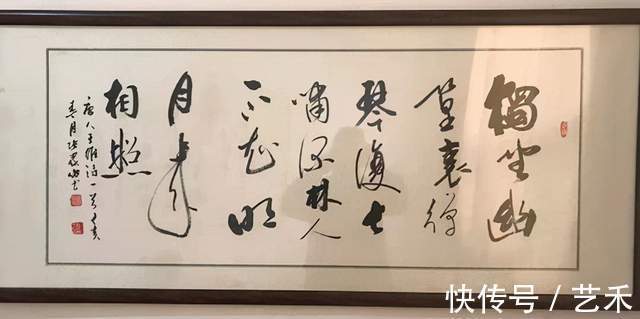 獨坐幽
篁裏彈
琴復長
嘯深林人
不知明
月来
相照
唐人王維詩一首
春月
快传号 / 艺禾